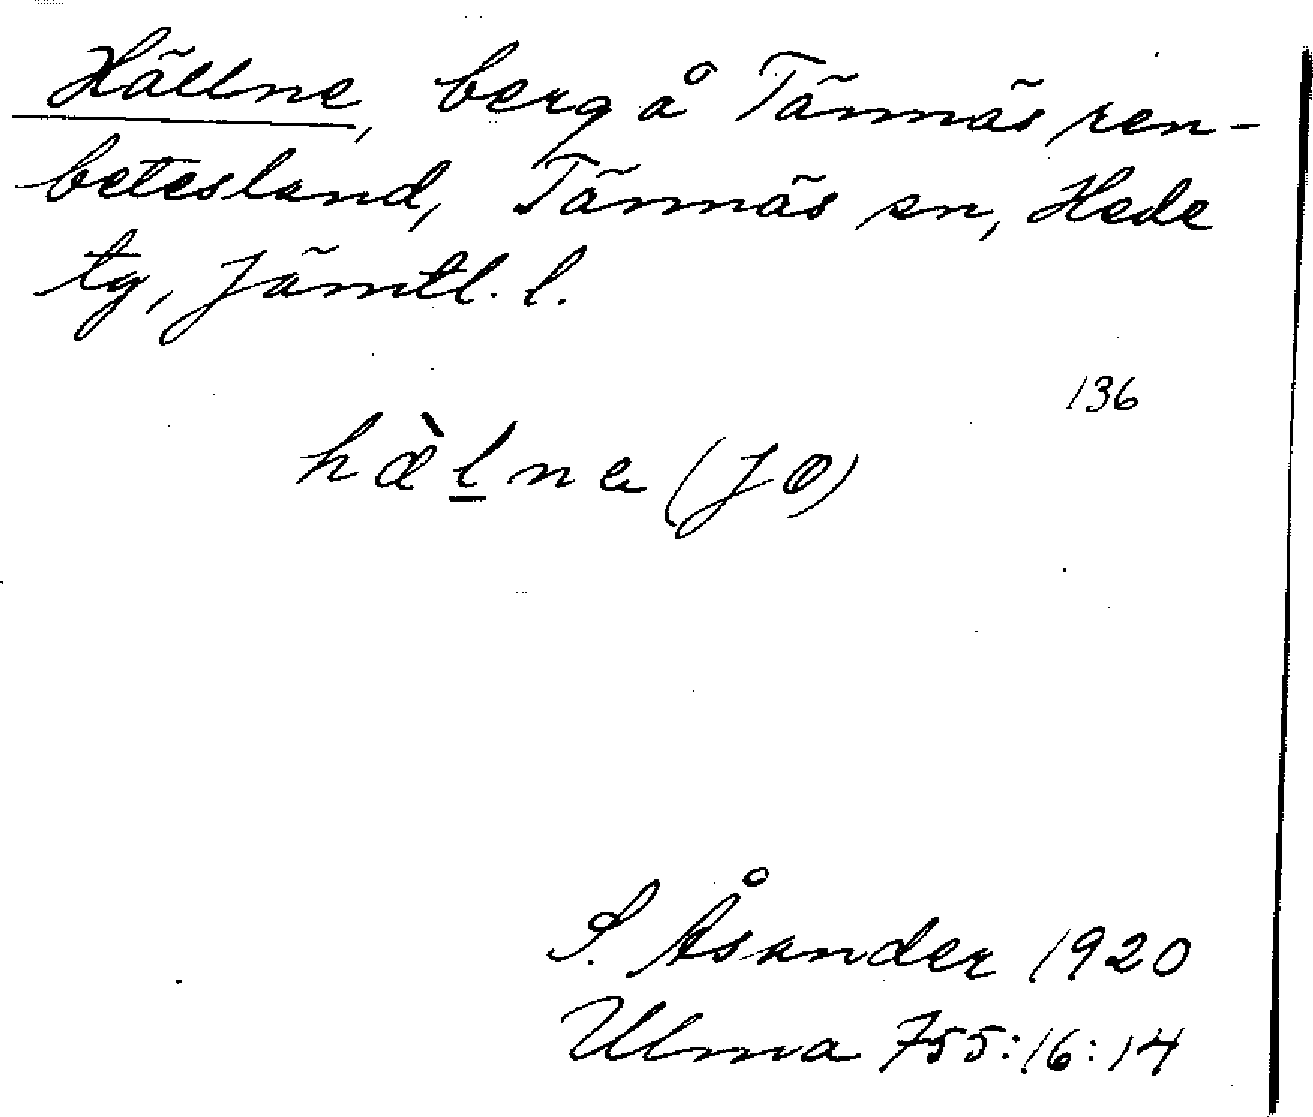 Hällne, berg å Tännäs ren-
betesland, Tännäs sn, Hede
tg, Jämtl. l.
136
hæ̀l̲ne (JO)
S. Åsander 1920
Ulma 755:16:14